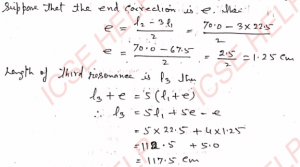 Suppose that the end correction is e. the
e = l₂ - 3l₁ / 2 = 70.0 - 3 × 22.5 / 2
e = 70.0 - 67.5 / 2 = 2.5 / 2 = 1.25 cm
Length of Third resonance is l₃ the
l₃ + e = 5 (l₁ + e)
∴ l₃ = 5l₁ + 5e - e
= 5 × 22.5 + 4 × 1.25
= 112.5 + 5.0
= 117.5 cm
ICSE HELP
ICSE HELP
ICSE HELP